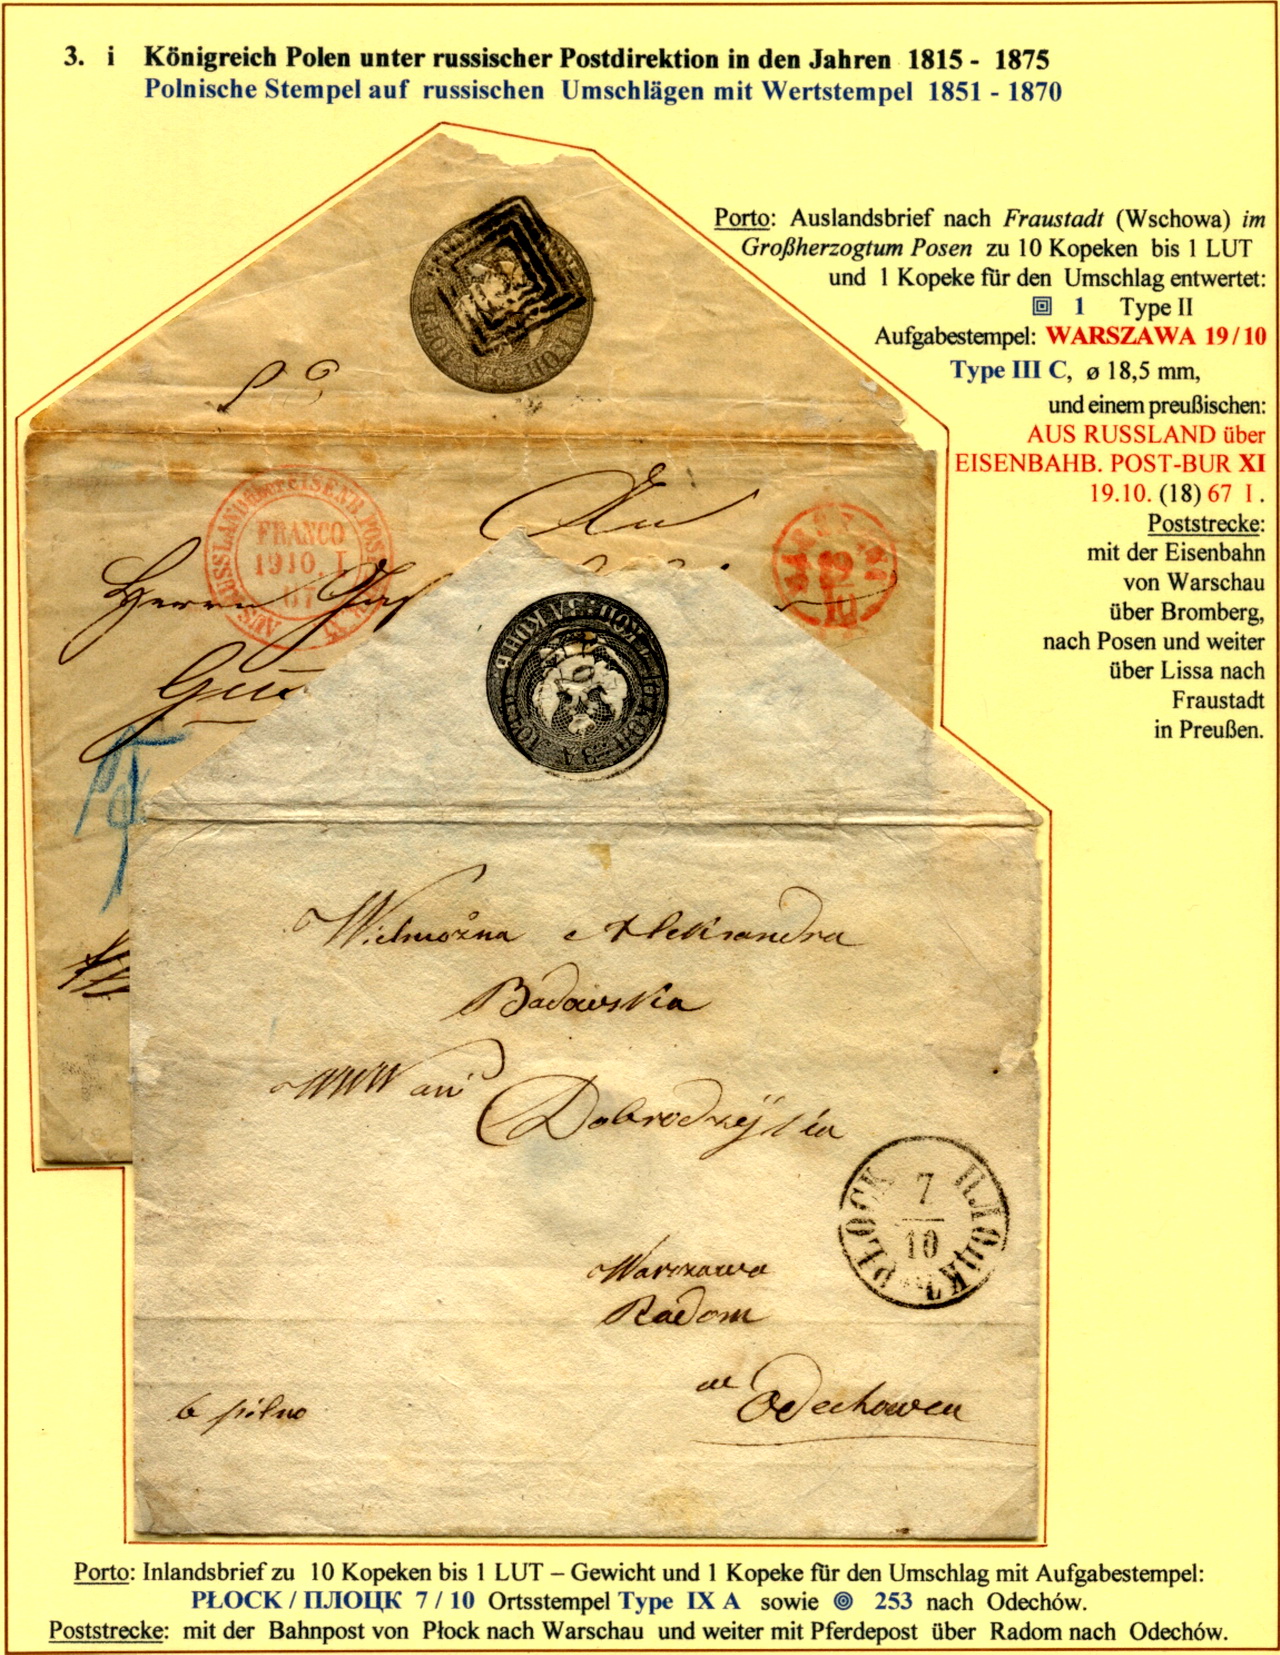 3. i Königreich Polen unter russischer Postdirektion in den Jahren 1815 - 1875
Polnische Stempel auf russischen Umschlägen mit Wertstempel 1851 - 1870
Porto: Auslandsbrief nach Fraustadt (Wschowa) im
Großherzogtum Posen zu 10 Kopeken bis 1 LUT
und 1 Kopeke für den Umschlag entwertet:
1 Type II
Aufgabestempel: WARSZAWA 19/10
Type III C, ø 18,5 mm,
und einem preußischen:
AUS RUSSLAND über
EISENBAHB. POST-BUR XI
19.10. (18) 67 I.
Poststrecke:
mit der Eisenbahn
von Warschau
über Bromberg,
nach Posen und weiter
über Lissa nach
Fraustadt
in Preußen.
AUS RUSSLAND über EISENB POST
FRANCO
19 10. I
67
An
Herrn
19
10
Wielmożna Aleksandra
Badowska
WWW ani
Dobrodzyika
PŁOCK ПЛОЦКЪ
7
10
Warszawa
Radom
w Odechowcu
b pilno
Porto: Inlandsbrief zu 10 Kopeken bis 1 LUT – Gewicht und 1 Kopeke für den Umschlag mit Aufgabestempel:
PŁOCK / ПЛОЦК 7 / 10 Ortsstempel Type IX A sowie 253 nach Odechów.
Poststrecke: mit der Bahnpost von Płock nach Warschau und weiter mit Pferdepost über Radom nach Odechów.